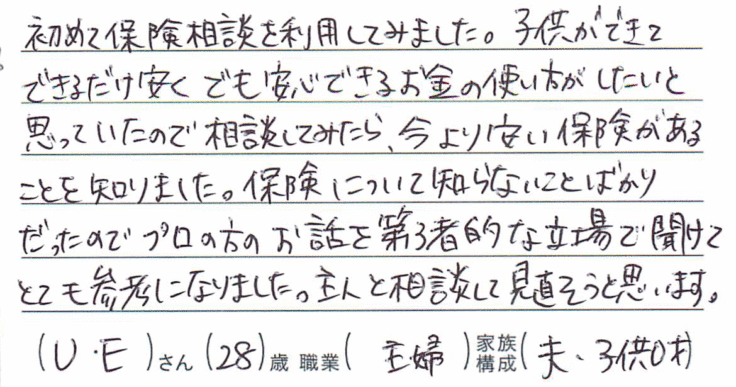 初めて保険相談を利用してみました。子供ができて
できるだけ安くでも安心できるお金の使い方がしたいと
思っていたので相談してみたら、今より安い保険がある
ことを知りました。保険について知らないことばかり
だったのでプロの方のお話を第3者的な立場で聞けて
とても参考になりました。主人と相談して見直そうと思います。
(U・E)さん(28)歳 職業(主婦)家族構成(夫、子供0才)